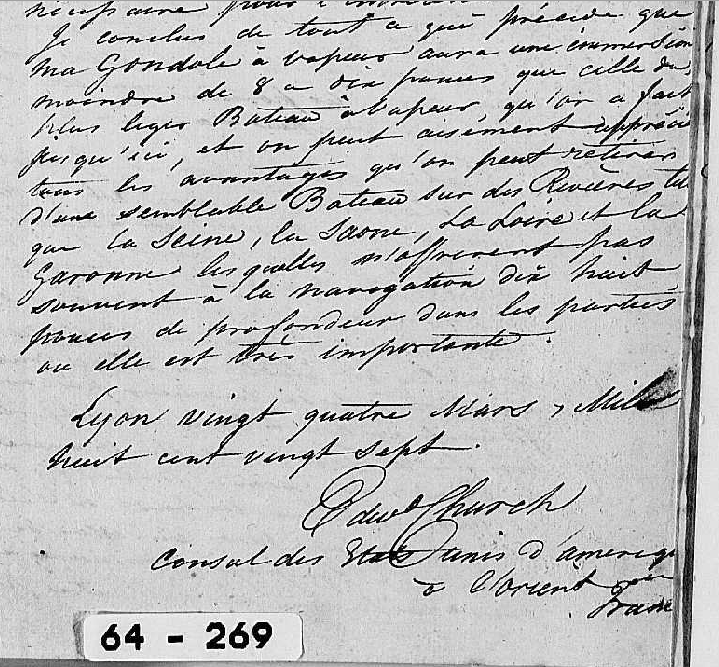 pour
Je conclus de tout a qui précède que
ma Gondole à vapeur aura une immersion
moindre de 8 a dix pouces que celle du
plus leger Bateau à vapeur qu'on a fait
jusqu'ici, et on peut aisément apprécie
tous les avantages qu'on peut retirer
d'une semblable Bateau sur des Rivières tel
que la Seine, la Saone, La Loire et la
Garonne lesquelles n'offrirent pas
souvent à la navagation dix huit
pouces de profondeur dans les parties
ou elle est très importante.
Lyon vingt quatre Mars, Mille
huit cent vingt sept.
Edwd Church
Consul des Etats Junis d'ameriq
à l'orient
Fran
64 - 269